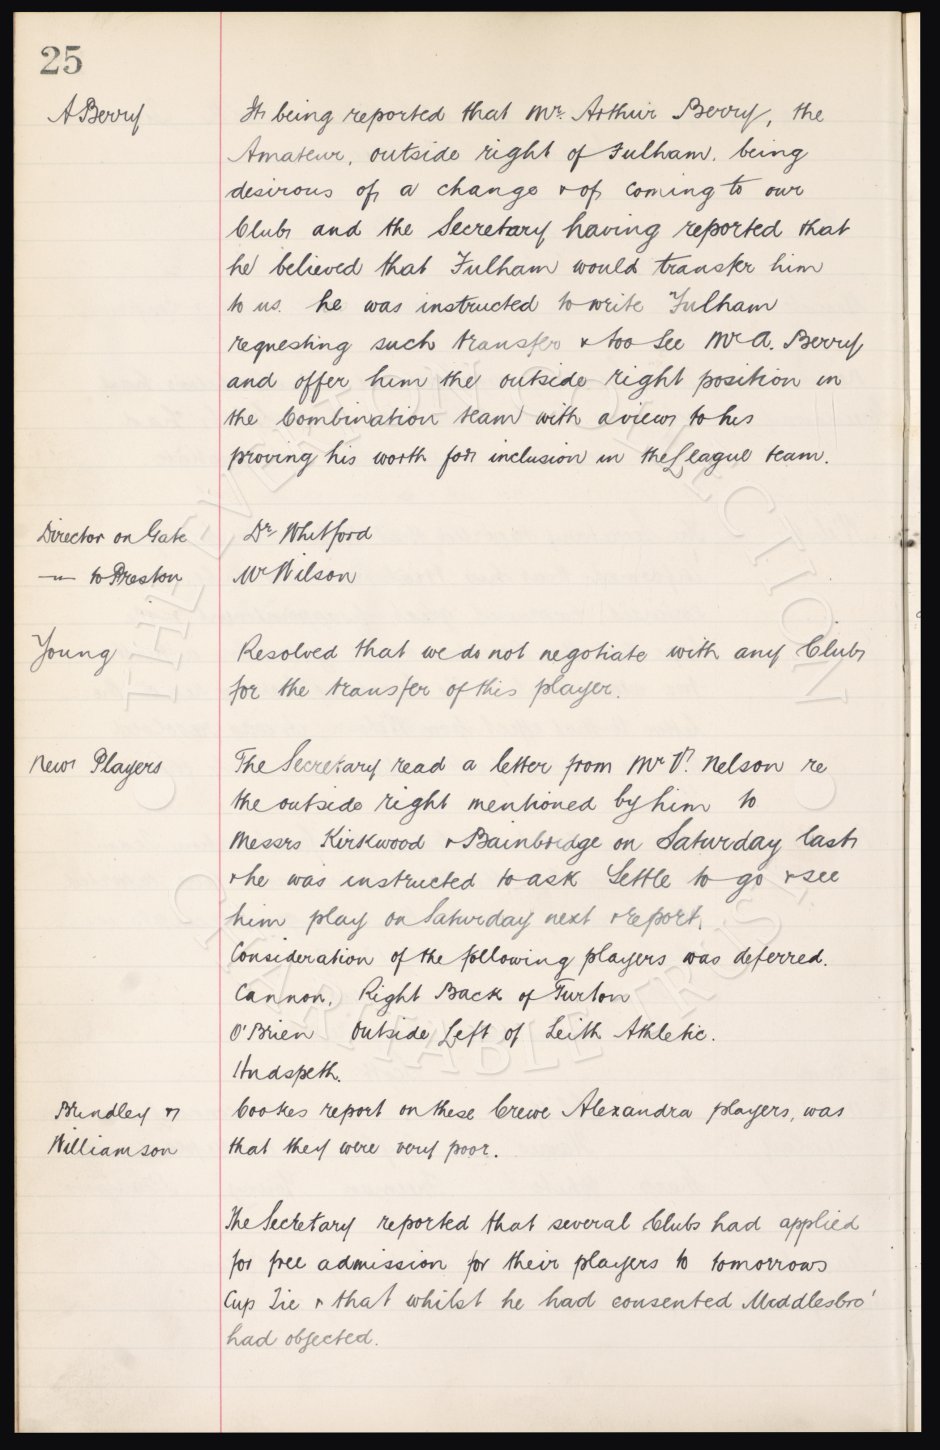 25
A Berry
It being reported that Mr. Arthur Berry, the
Amateur, outside right of Fulham, being
desirous of a change & of coming to our
Club and the Secretary having reported that
he believed that Fulham would transfer him
to us. he was instructed to write Fulham
requesting such transfer & too see Mr A. Berry
and offer him the outside right position in
the Combination team with a view to his
proving his worth for inclusion in the League team.
Director on Gate Dr Whitford
—"— to Preston Mr Wilson
Young
Resolved that we do not negotiate with any Club
for the transfer of this player.
New Players
The Secretary read a letter from Mr V. Nelson re
the outside right mentioned by him to
Messrs Kirkwood & Bainbridge on Saturday last
& he was instructed to ask Settle to go & see
him play on Saturday next & report.
Consideration of the following players was deferred.
Cannon, Right Back of Turton
O'Brien Outside Left of Leith Athletic.
Hudspeth.
Brindley &
Williamson
Cookes report on these Crewe Alexandra players, was
that they were very poor.
The Secretary reported that several Clubs had applied
for free admission for their players to tomorrows
Cup Tie & that whilst he had consented Middlesbro'
had objected.
THE EVERTON COLLECTION
CHARITABLE TRUST